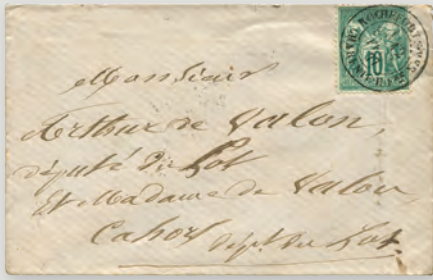 Monsieur
Arthur de Valon,
député du Lot
Et Madame de Valon,
Cahors dépt du Lot
10
ROCHEFORT